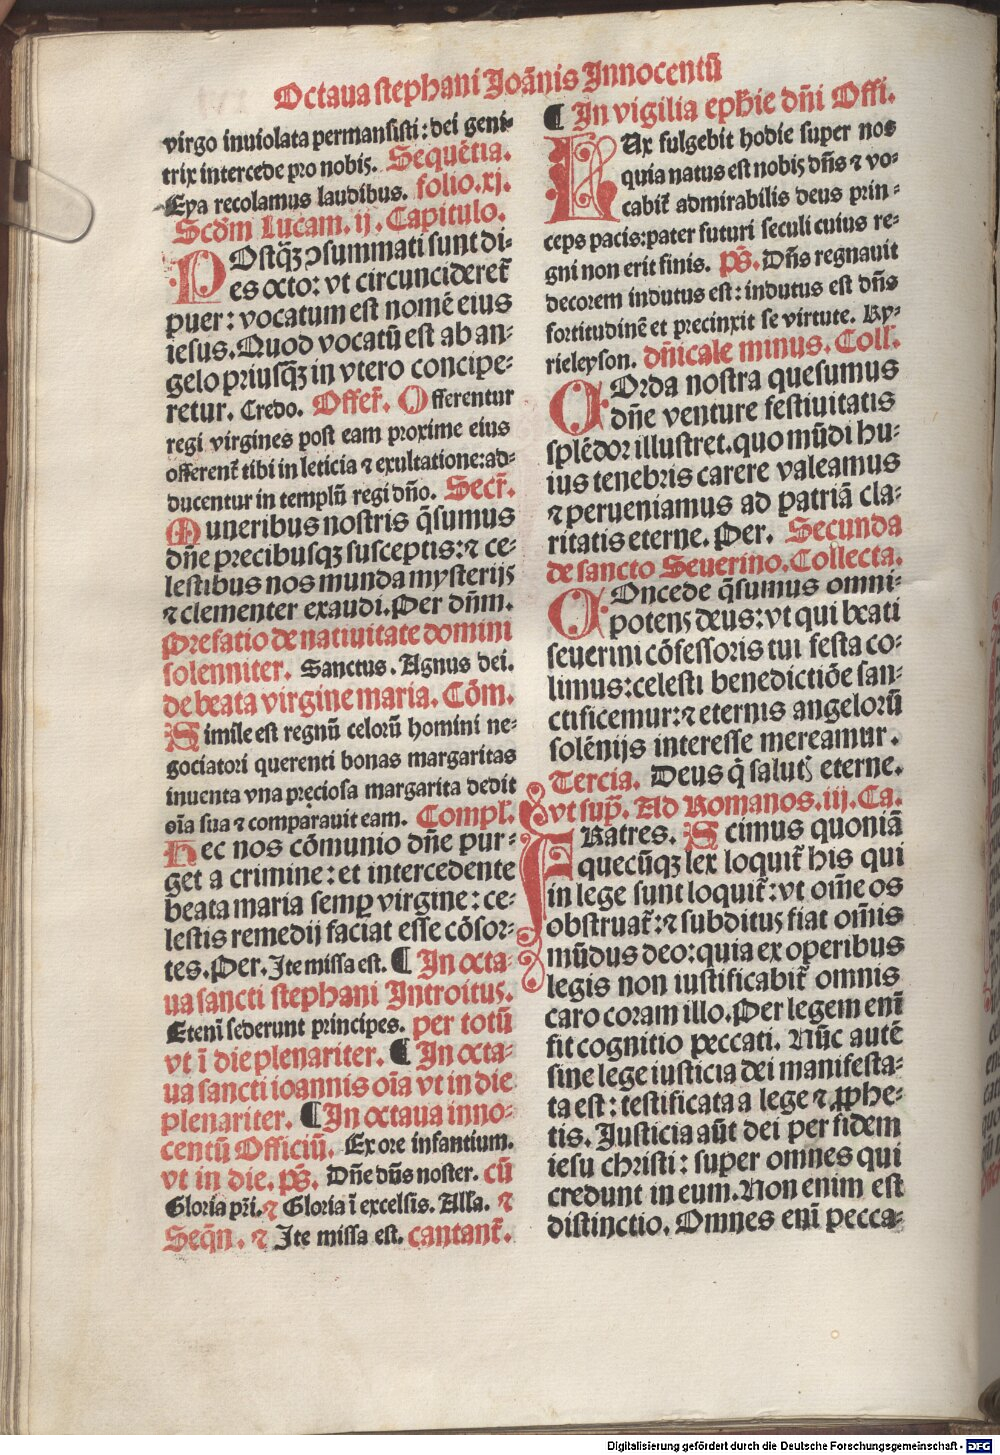 Octaua stephani Joānis Innocentū
virgo inuiolata permansisti: dei geni-
trix intercede pro nobis. Sequētia.
Eya recolamus laudibus. folio.xj.
Scdm Lucam. ij. Capitulo.
POstqꝫ ↄsummati sunt di-
es octo: vt circuncideret̄
puer: vocatum est nomē eius
iesus. Quod vocatū est ab an-
gelo priusqꝫ in vtero concipe-
retur. Credo. Offert̄. Offerentur
regi virgines post eam proxime eius
offerent̄ tibi in leticia ⁊ exultatione: ad-
ducentur in templū regi dño. Secr̄.
Muneribus nostris q̄sumus
dñe precibusqꝫ susceptis: ⁊ ce-
lestibus nos munda mysterijs
⁊ clementer exaudi. Per dñm.
Prefatio de natiuitate domini
solenniter. Sanctus. Agnus dei.
de beata virgine maria. Cōm.
Simile est regnū celorū homini ne-
gociatori querenti bonas margaritas
inuenta vna preciosa margarita dedit
oīa sua ⁊ comparauit eam. Compl.
Hec nos cōmunio dñe pur-
get a crimine: et intercedente
beata maria semp virgine: ce-
lestis remedij faciat esse cōsor-
tes. Per. Ite missa est. ¶ In octa-
ua sancti stephani Introitus.
Etenī sederunt principes. per totū
vt ī die plenariter. ¶ In octa-
ua sancti ioannis oīa vt in die
plenariter. ¶ In octaua inno-
centū Officiū. Ex ore infantium.
vt in die. ps. Dñe dñs noster. cū
Gloria pri. ⁊ Gloria ī excelsis. Alla. ⁊
Seqn. ⁊ Ite missa est. cantant̄.
¶ In vigilia ephie dñi Offi.
LUx fulgebit hodie super nos
quia natus est nobis dñs ⁊ vo-
cabit̄ admirabilis deus prin-
ceps pacis: pater futuri seculi cuius re-
gni non erit finis. ps. Dñs regnauit
decorem indutus est: indutus est dñs
fortitudinē et precinxit se virtute. Ky-
rieleyson. dñicale minus. Coll.
COrda nostra quesumus
dñe venture festiuitatis
splēdor illustret. quo mūdi hu-
ius tenebris carere valeamus
⁊ perueniamus ad patriā cla-
ritatis eterne. Per. Secunda
de sancto Seuerino. Collecta.
COncede q̄sumus omni-
potens deus: vt qui beati
seuerini cōfessoris tui festa co-
limus: celesti benedictiōe san-
ctificemur: ⁊ eternis angelorū
solēnijs interesse mereamur.
Tercia. Deus q̄ salutꝭ eterne.
vt sup̄. Ad Romanos. iij. Ca.
FRatres. Scimus quoniā
quecūqꝫ lex loquit̄ his qui
in lege sunt loquit̄: vt oīne os
obstruat̄: ⁊ subditus fiat oīnis
mūdus deo: quia ex operibus
legis non iustificabit̄ omnis
caro coram illo. Per legem enī
fit cognitio peccati. Nūc autē
sine lege iusticia dei manifesta-
ta est: testificata a lege ⁊ ꝓphe-
tis. Iusticia aūt dei per fidem
iesu christi: super omnes qui
credunt in eum. Non enim est
distinctio. Omnes enī pecca-
Digitalisierung gefördert durch die Deutsche Forschungsgemeinschaft - DFG